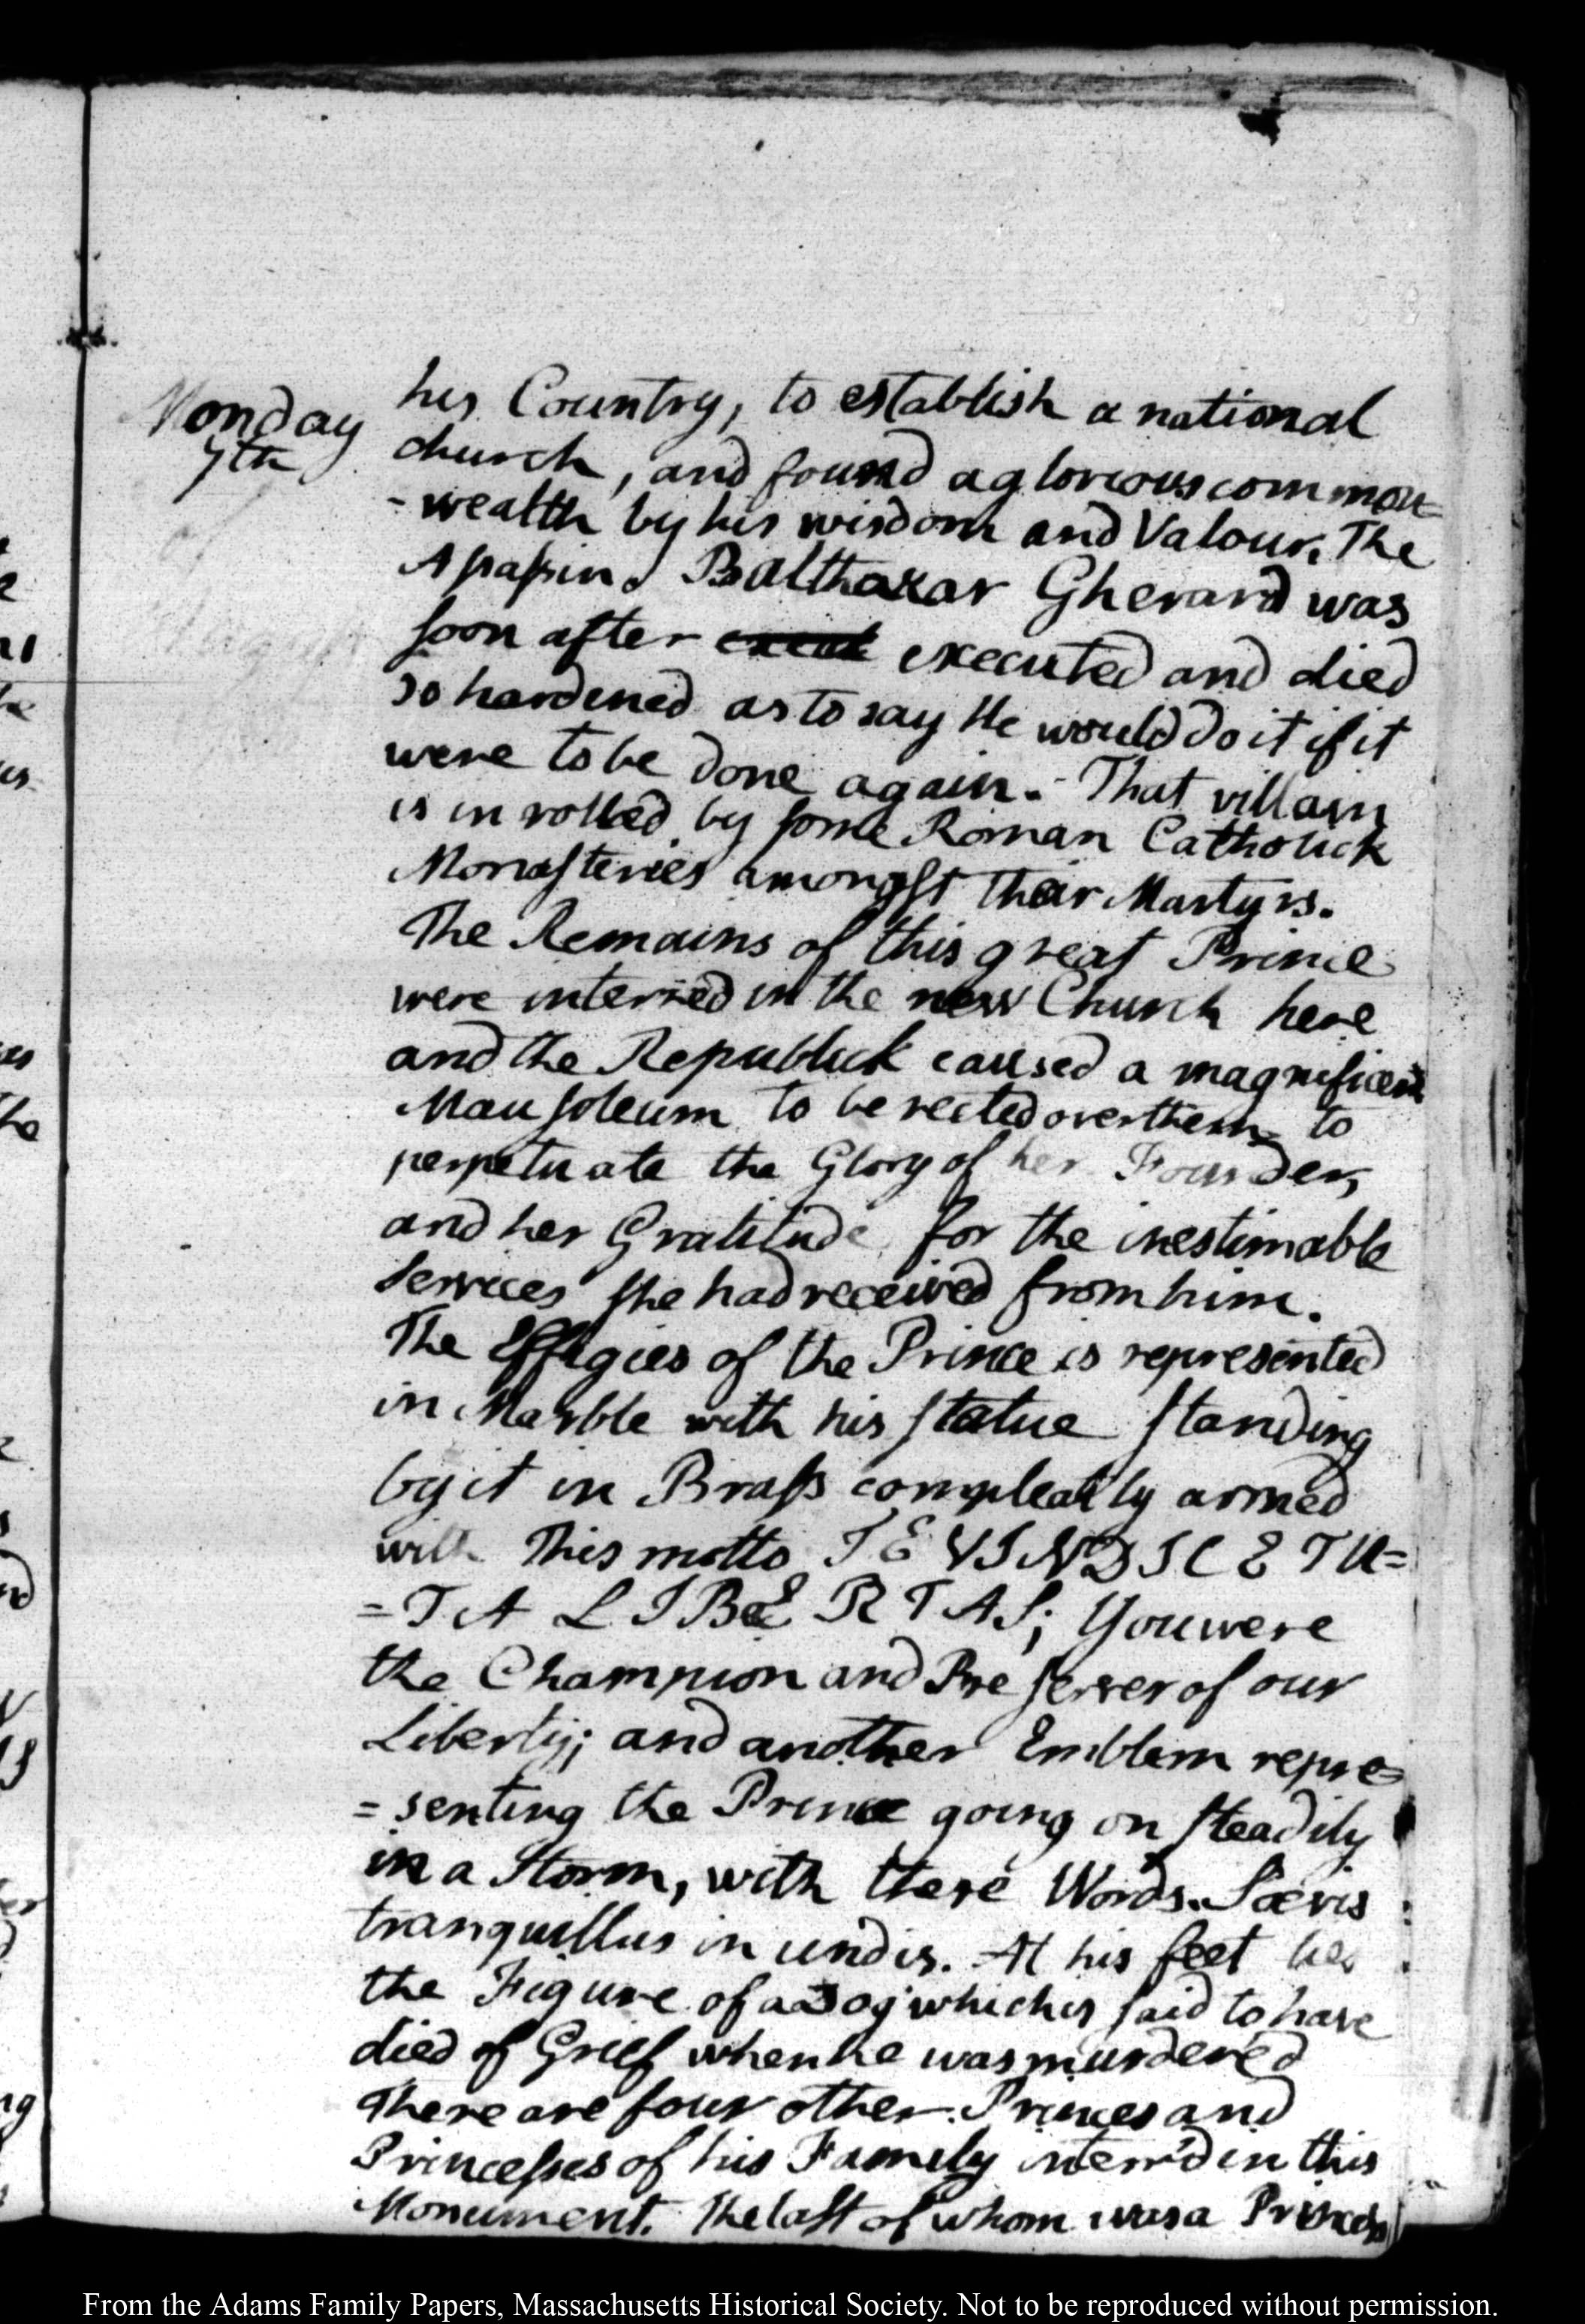 Monday
7th
his Country, to establish a national
church, and found a glorious common=
-wealth by his wisdom and Valour. The
Assassin Balthazar Gherard was
soon after executed and died
so hardened as to say He would do it if it
were to be done again. That villain
is inrolled by some Roman Catholick
Monasteries amongst their Martyrs.
The Remains of this great Prince
were interred in the new Church here
and the Republick caused a magnificent
Mausoleum to be rected over them to
perpetuate the Glory of her Founder,
and her Gratitude for the inestimable
Services she had received from him.
The Effigies of the Prince is represented
in Marble with his statue standing
by it in Brass compleatly armed
with This motto TE VINDICE TU=
=TA LIBERTAS; You were
the Champion and Preserver of our
Liberty; and another Emblem repre=
=senting the Prince going on steadily
in a Storm, with these Words. Sævis
tranquillus in undis. At his feet lies
the Figure of a Dog which is said to have
died of Grief when he was murdered
There are four other Princes and
Princesses of his Family interr'd in this
Monument. The last of whom was a Princess
From the Adams Family Papers, Massachusetts Historical Society. Not to be reproduced without permission.